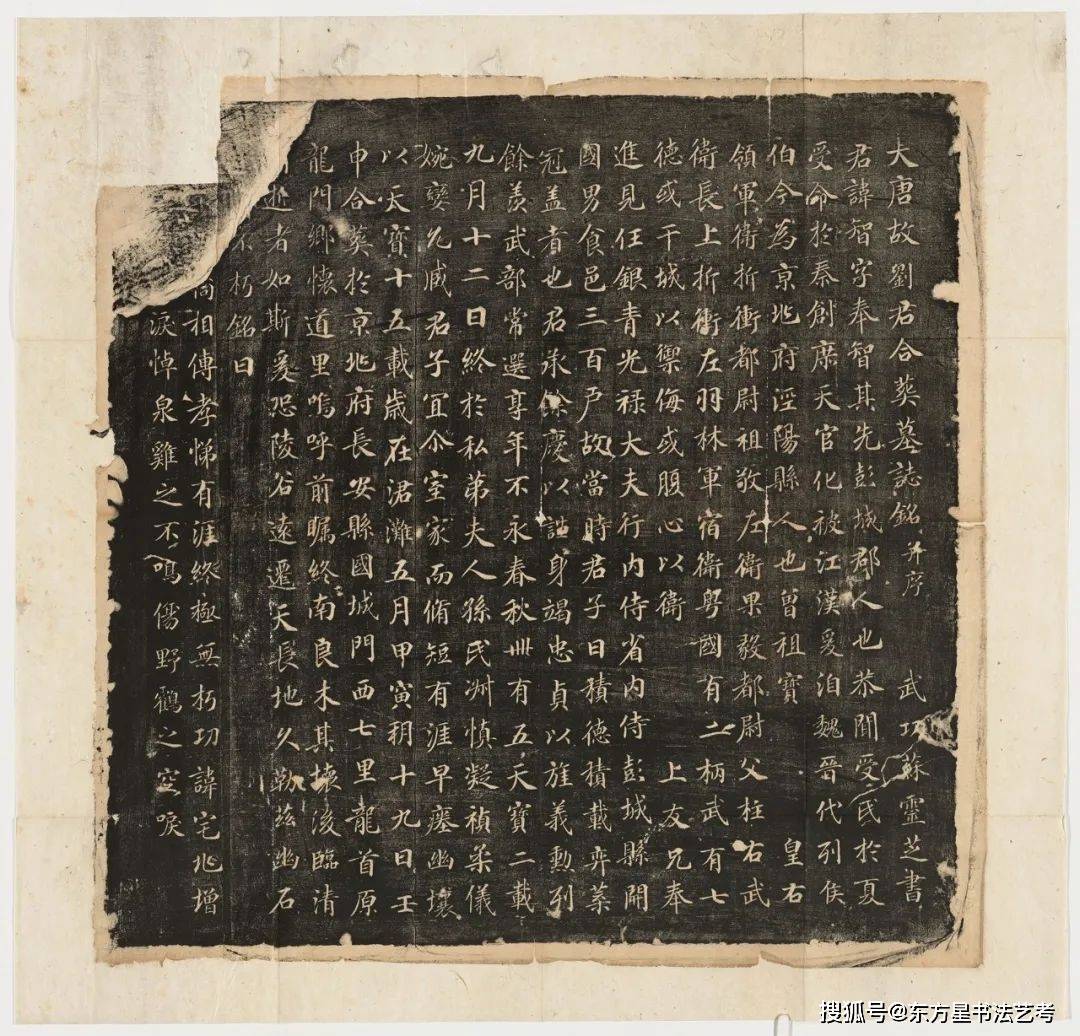 大唐故劉君合葬墓誌銘并序 武功蘇靈芝書
君諱智字奉智其先彭城郡人也恭聞受氏於夏
受命於秦創席天官化被江漢爰洎魏晉代列侯
伯今為京兆府涇陽縣人也曾祖寶 皇右
領軍衛折衝都尉祖敬左衛果毅都尉父柱右武
衛長上折衝左羽林軍宿衛粵國有二柄武有七
德或干城以禦侮或腹心以衛 上友兄奉
進見任銀青光祿大夫行內侍省內侍彭城縣開
國男食邑三百戶故當時君子曰積德積載弈葉
冠蓋者也君承餘慶以詿身竭忠貞以旌義勳列
餘羨武部常選享年不永春秋卌有五天寶二載
九月十二日終於私第夫人孫氏淑慎凝禎柔儀
婉孌允臧君子宜尒室家而脩短有涯早瘞幽壤
以天寶十五載歲在涒灘五月甲寅朔十九日壬
申合葬於京兆府長安縣國城門西七里龍首原
龍門鄉懷道里嗚呼前矚終南良木其壞後臨清
逝者如斯爰恐陵谷遠遷天長地久勒茲幽石
不朽銘曰
相傳孝悌有涯終極無朽功諱宅兆增
淚悼泉雞之不鳴傷野鶴之空唳
搜狐号@东方星书法艺考